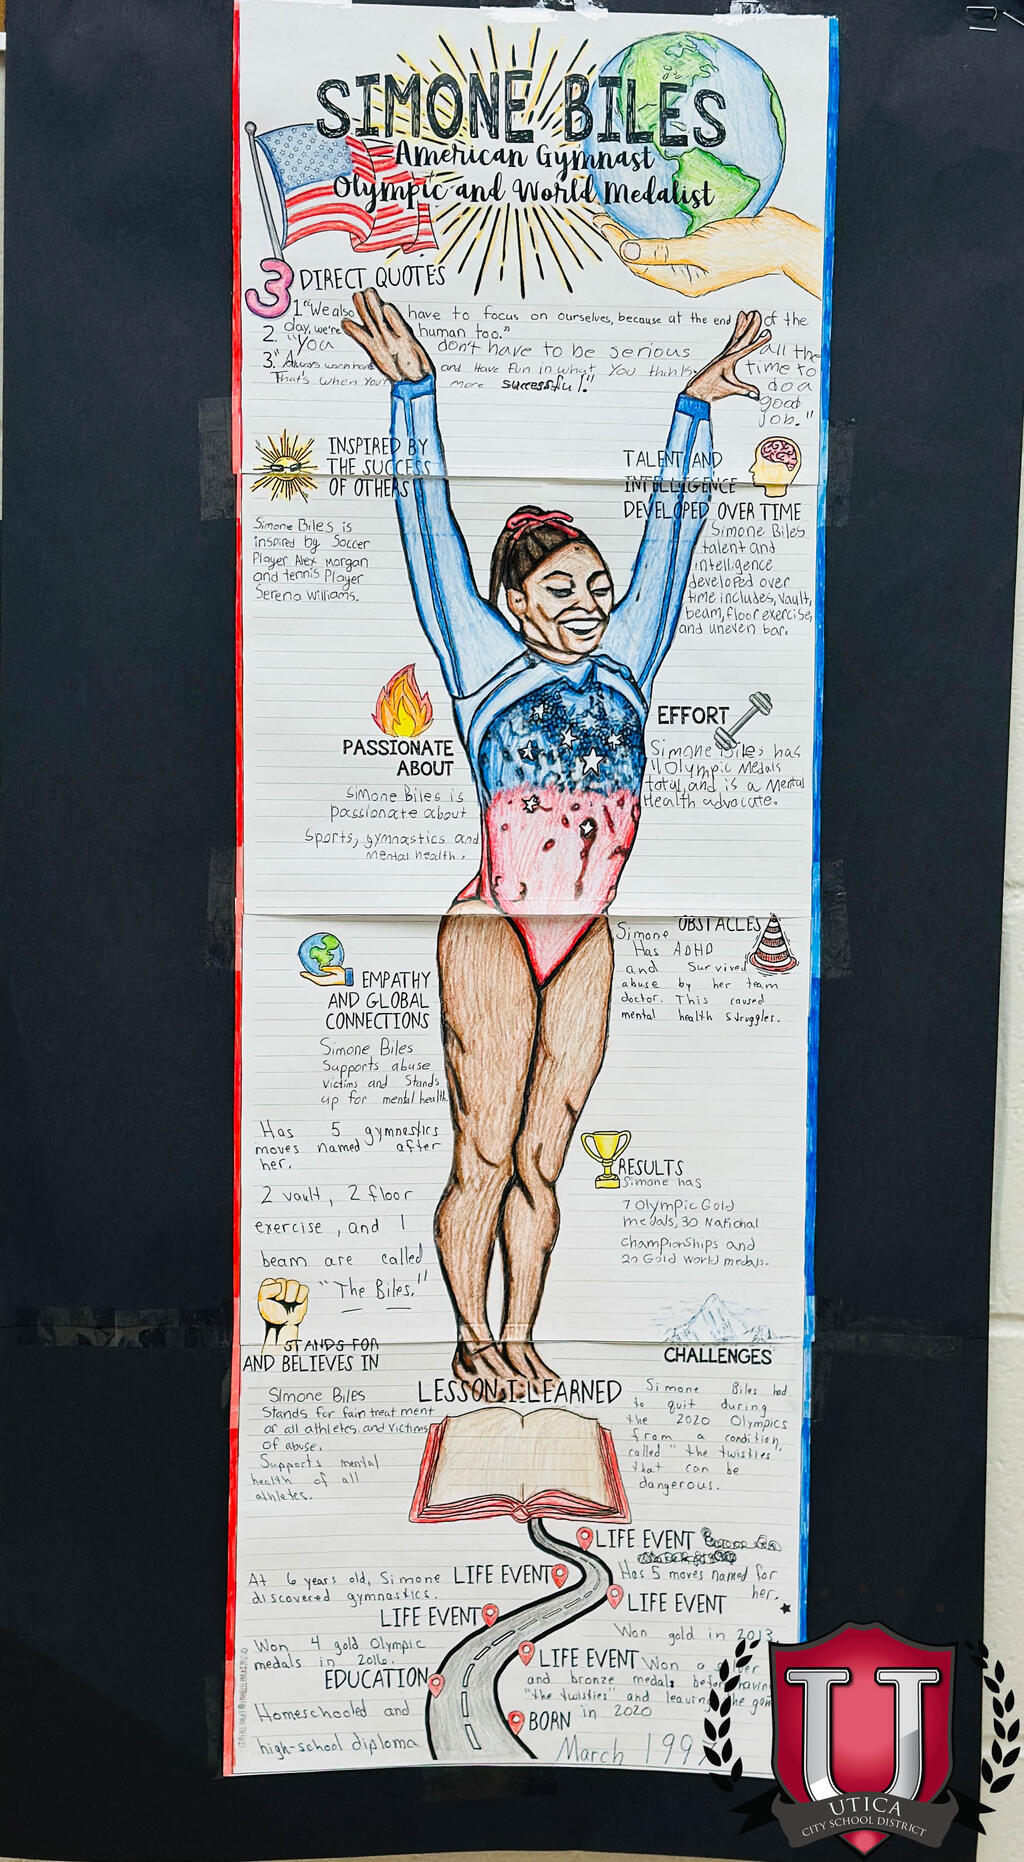 SIMONE BILES
American Gymnast
Olympic and World Medalist
3 DIRECT QUOTES
1. "We also have to focus on ourselves, because at the end of the
day, we're human too."
2. "You don't have to be serious all the
time to
do a
good
job."
3. "Always work hard and have fun in what you think.
That's when you're more successful."
INSPIRED BY
THE SUCCESS
OF OTHERS
Simone Biles is
inspired by Soccer
Player Alex Morgan
and tennis Player
Serena Williams.
TALENT AND
INTELLIGENCE
DEVELOPED OVER TIME
Simone Biles
talent and
intelligence
developed over
time includes, vault,
beam, floor exercise,
and uneven bar.
PASSIONATE
ABOUT
Simone Biles is
passionate about
Sports, gymnastics and
mental health.
EFFORT
Simone Biles has
11 Olympic Medals
total, and is a Mental
Health advocate.
EMPATHY
AND GLOBAL
CONNECTIONS
Simone Biles
Supports abuse
victims and Stands
up for mental health
Has 5 gymnastics
moves named after
her.
2 vault, 2 floor
exercise, and 1
beam are called
"The Biles."
OBSTACLES
Simone
Has ADHD
and Survived
abuse by her team
doctor. This caused
mental health struggles.
RESULTS
Simone has
7 Olympic Gold
medals, 30 National
Championships and
20 Gold World medals.
STANDS FOR
AND BELIEVES IN
Simone Biles
Stands for fair treatment
of all athletes, and victims
of abuse.
Supports mental
health of all
athletes.
CHALLENGES
Simone Biles had
to quit during
the 2020 Olympics
from a condition,
called "the twisties"
that can be
dangerous.
LESSON I LEARNED
LIFE EVENT
Has 5 moves named for
her.
LIFE EVENT
At 6 years old, Simone
discovered gymnastics.
LIFE EVENT
Won gold in 2013
LIFE EVENT
Won 4 gold Olympic
medals in 2016.
LIFE EVENT Won a
and bronze medals
"the twisties" and leaving
in 2020
EDUCATION
Homeschooled and
high-school diploma
BORN
March 1997
U
UTICA
CITY SCHOOL DISTRICT